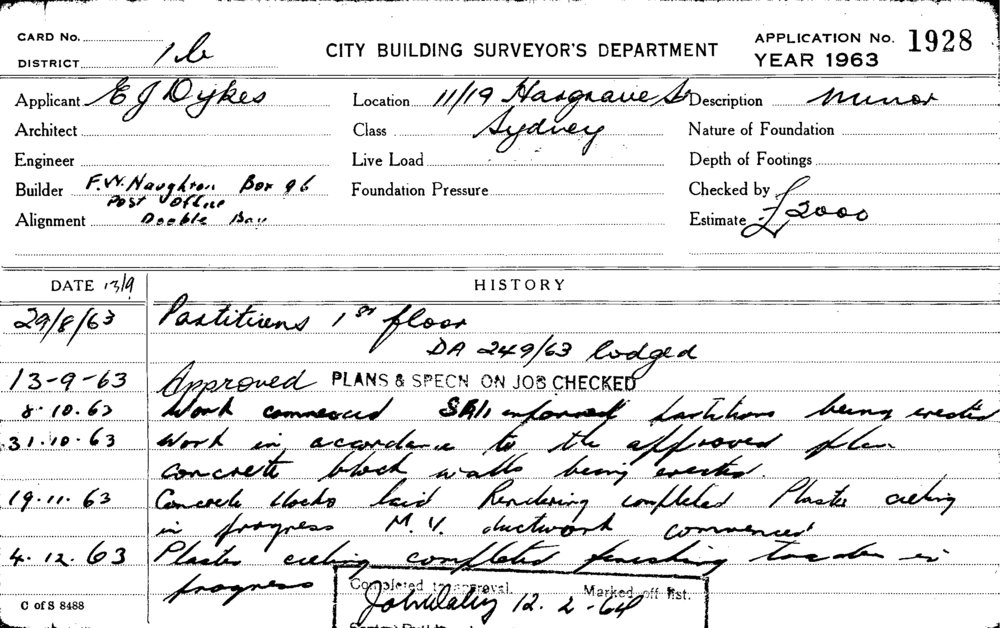 CARD No.
DISTRICT 1b
CITY BUILDING SURVEYOR'S DEPARTMENT
APPLICATION No. 1928
YEAR 1963
Applicant E J Dykes
Location 11/19 Hargrave St
Description Minor
Architect
Class Sydney
Nature of Foundation
Engineer
Live Load
Depth of Footings
Builder F.W. Naughton Box 96
Post Office
Foundation Pressure
Checked by
Alignment Double Bay
Estimate £2000
DATE 13/9
HISTORY
29/8/63 Partitions 1st floor
DA 249/63 lodged
13-9-63 Approved PLANS & SPECN ON JOB CHECKED
8.10.63 Work commenced informed partitions being erected
31.10.63 Work in accordance to the approved plan
concrete block walls being erected.
19.11.63 Concrete blocks laid Rendering completed Plaster ceiling
in progress M.V. ductwork commenced
4.12.63 Plaster ceiling completed finishing trades in
progress
Completed to approval. Marked off list.
12.2-64
C of S 8488